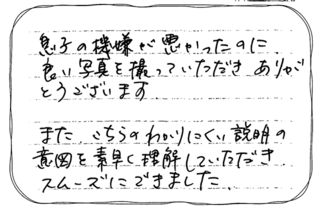 息子の機嫌が悪かったのに
良い写真を撮っていただき ありが
とうございます
また、こちらのわかりにくい説明の
意図を素早く理解していただき
スムーズにできました。